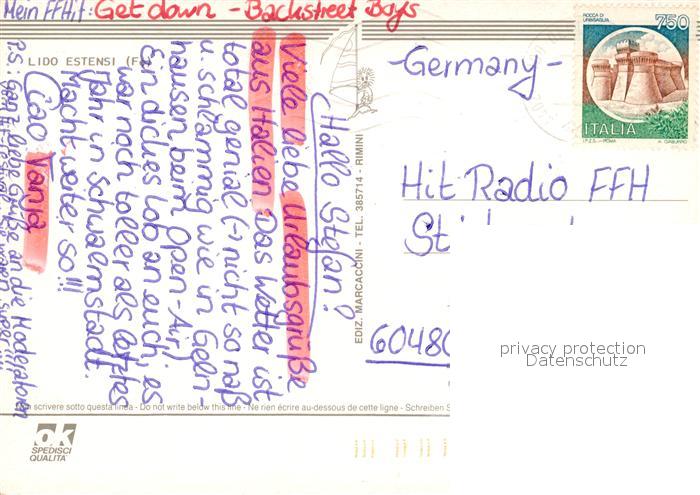 Mein FFHit: Get down - Backstreet Boys
LIDO ESTENSI (Fe)
Hallo Stefan!
Viele liebe Urlaubsgrüße
aus Italien. Das Wetter ist
total genial (- nicht so naß
u. schlammig wie in Geln-
haussen beim Open-Air).
Ein dickes Lob an euch, es
war noch toller als letztes
Jahr in Schwalmstadt.
Macht weiter so!!!
Ciao Vanja
P.S: Ganz liebe Grüße an die Moderatoren
waren super!!!
EDIZ. MARCACCINI - TEL. 385714 - RIMINI
-Germany-
Hit Radio FFH
St
60480
ROCCA DI
URBISAGLIA
750
ITALIA
I.P.Z.S. - ROMA
scrivere sotto questa linea - Do not write below this line - Ne rien écrire au-dessous de cette ligne - Schreiben S
ok
SPEDISCI
QUALITÀ
privacy protection
Datenschutz